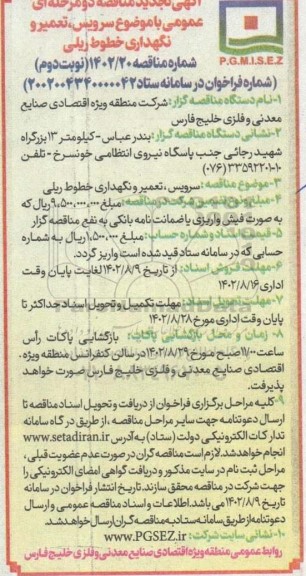 آگهی تجدید مناقصه دو مرحله ای
عمومی با موضوع سرویس، تعمیر و
نگهداری خطوط ریلی
P.G.M.I.S.E.Z
شماره مناقصه ۱۴۰۲/۲۰ (نوبت دوم)
(شماره فراخوان در سامانه ستاد ۲۰۰۲۰۰۴۳۴۰۰۰۰۰۴۲)
۱- نام دستگاه مناقصه گزار: شرکت منطقه ویژه اقتصادی صنایع
معدنی و فلزی خلیج فارس
۲- نشانی دستگاه مناقصه گزار: بندر عباس - کیلومتر ۱۳ بزرگراه
شهید رجائی جنب پاسگاه نیروی انتظامی خونسرخ - تلفن
۱۰-۳۳۵۹۲۲۰۱ (۰۷۶)
۳- موضوع مناقصه: سرویس، تعمیر و نگهداری خطوط ریلی
۴- مبلغ و نوع تضمین شرکت در مناقصه: مبلغ ۹,۵۰۰,۰۰۰,۰۰۰ ریال که
به صورت فیش واریزی یا ضمانت نامه بانکی به نفع مناقصه گزار
۵- قیمت اسناد و شماره حساب: مبلغ ۱,۵۰۰,۰۰۰ ریال به شماره
حسابی که در سامانه ستاد قید شده است واریز گردد.
۶- مهلت فروش اسناد: از تاریخ ۱۴۰۲/۸/۹ لغایت پایان وقت
اداری ۱۴۰۲/۸/۱۶
۷- مهلت تحویل اسناد: مهلت تکمیل و تحویل اسناد حداکثر تا
پایان وقت اداری مورخ ۱۴۰۲/۸/۲۸
۸- زمان و محل بازگشایی پاکات: بازگشایی پاکات رأس
ساعت ۱۱/۰۰ صبح مورخ ۱۴۰۲/۸/۲۹ در سالن کنفرانس منطقه ویژه
اقتصادی صنایع معدنی و فلزی خلیج فارس صورت خواهد
پذیرفت.
۹- کلیه مراحل برگزاری فراخوان از دریافت و تحویل اسناد مناقصه تا
ارسال دعوتنامه جهت سایر مراحل مناقصه، از طریق درگاه سامانه
تدارکات الکترونیکی دولت (ستاد) به آدرس www.setadiran.ir
انجام خواهد شد. لازم است مناقصه گران در صورت عدم عضویت قبلی،
مراحل ثبت نام در سایت مذکور و دریافت گواهی امضای الکترونیکی را
جهت شرکت در مناقصه محقق سازند. تاریخ انتشار فراخوان در سامانه
تاریخ ۱۴۰۲/۸/۹ می باشد. اطلاعات و اسناد مناقصه عمومی و ارسال
دعوتنامه از طریق سامانه ستاد به مناقصه گران ارسال خواهد شد.
۱۰- نشانی سایت شرکت: www.PGSEZ.ir
روابط عمومی منطقه ویژه اقتصادی صنایع معدنی و فلزی خلیج فارس